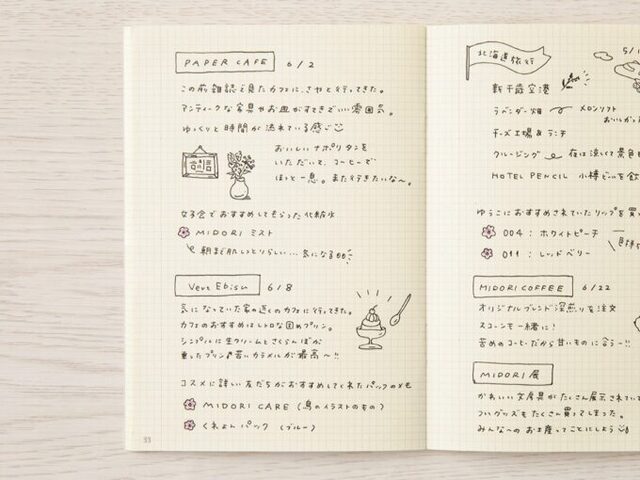 PAPER CAFE 6/2
この前雑誌で見たカフェに、さやと行ってきた。
アンティークな家具やお皿がすてきでいい雰囲気。
ゆっくりと時間が流れている感じ
おいしいナポリタンを
いただいて、コーヒーで
ほっと一息。また行きたいな〜。
女子会でおすすめしてもらった化粧水
MIDORI ミスト
朝まで肌しっとりらしい…気になる
Vert Ebisu 6/8
気になっていた家の近くのカフェに行ってきた。
カフェのおすすめはレトロな固めプリン。
シンプルに生クリームとさくらんぼが
乗ったプリン♪苦いカラメルが最高〜!!
コスメに詳しい友だちがおすすめしてくれたパックのメモ
MIDORI CARE (鳥のイラストのもの)
くれよんパック (ブルー)
33
北海道旅行 5/1
新千歳空港
ラベンダー畑 メロンソフト
おいしかっ
チーズ工場&ランチ
クルージング 夜は涼しくて景色
HOTEL PENCIL 小樽ビールを飲
ゆうこにおすすめされていたリップを買
004 : ホワイトピーチ
011 : レッドベリー
MIDORI COFFEE 6/22
オリジナルブレンド深煎りを注文
スコーンも一緒に!
苦めのコーヒーだから甘いものに合う〜!!
MIDORI 展
かわいい文房具がたくさん展示されてい
ついグッズもたくさん買ってしまった。
みんなへのお土産ってことにしよう